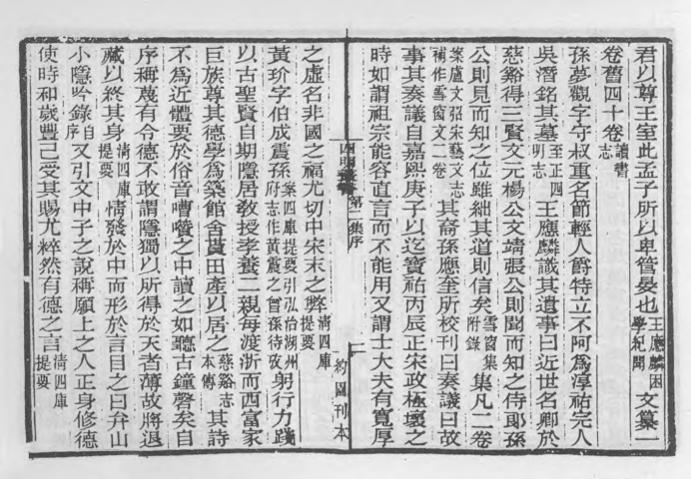 君以尊王室此孟子所以卑管晏也王應麟困學紀聞文纂一
卷舊四十卷讀書志
孫夢觀字守叔重名節輕人爵特立不阿為淳祐完人
吳潛銘其墓至正四明志王應麟識其遺事曰近世名卿於
慈谿得三賢文元楊公文靖張公則聞而知之侍郎孫
公則見而知之位雖絀其道則信矣雪窗集附錄集凡二卷
案盧文弨宋藝文志補作雪窗文二卷其裔孫應奎所校刊曰奏議曰故
事其奏議自嘉熙庚子以迄寶祐丙辰正宋政極壞之
時如謂祖宗能容直言而不能用又謂士大夫有寬厚
四明叢書 第二集序 二 約園刊本
之虛名非國之福尤切中宋末之弊清四庫提要
黃玠字伯成震孫案四庫提要引弘治湖州府志作黃震之曾孫待攷躬行力踐
以古聖賢自期隱居教授孝養二親每渡浙而西富家
巨族尊其德學為築館舍置田產以居之慈谿志本傳其詩
不為近體要於俗音嘈囋之中讀之如聽古鐘磬矣自
序稱蔑有令德不敢謂隱獨以所得於天者薄故將退
藏以終其身清四庫提要情發於中而形於言目之曰弁山
小隱吟錄自序又引文中子之說稱願上之人正身修德
使時和歲豐己受其賜尤粹然有德之言清四庫提要